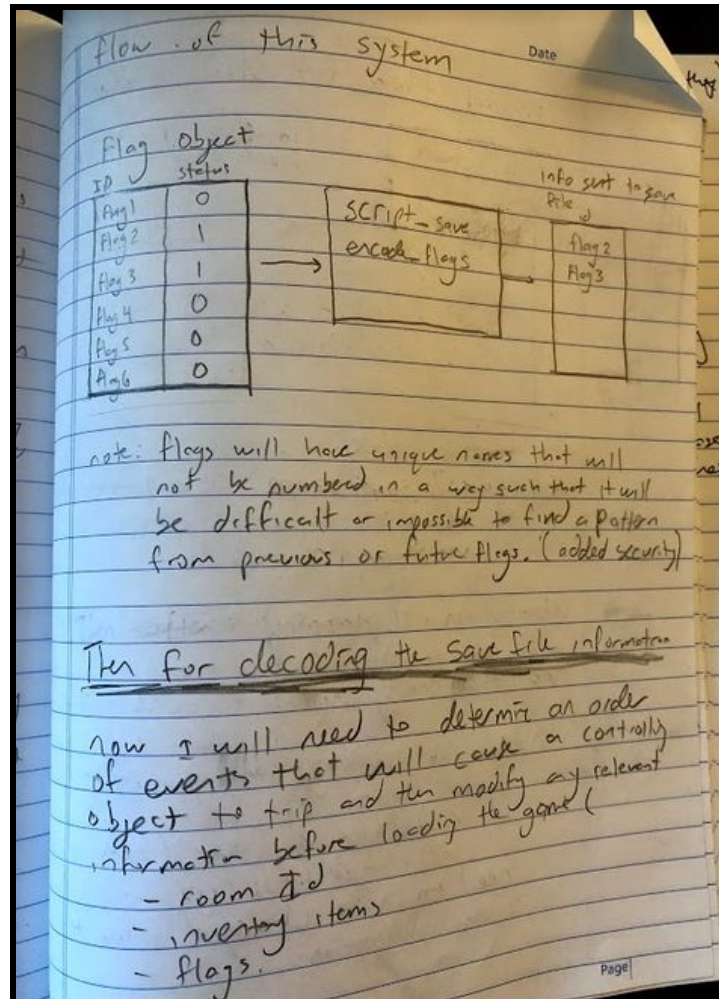 flow of this system
Date
Flag Object
ID status
flag1 0
flag2 1
flag3 1
flag4 0
flag5 0
flag6 0
script_save
encode_flags
info sent to save
file
flag2
flag3
note: flags will have unique names that will
not be numbered in a way such that it will
be difficalt or impossible to find a pattern
from previous or future flags. (added security)
Then for decoding the save file information
now I will need to determine an order
of events that will cause a controlling
object to trip and then modify any relevant
information before loading the game (
- room Id
- inventory items
- flags.
Page